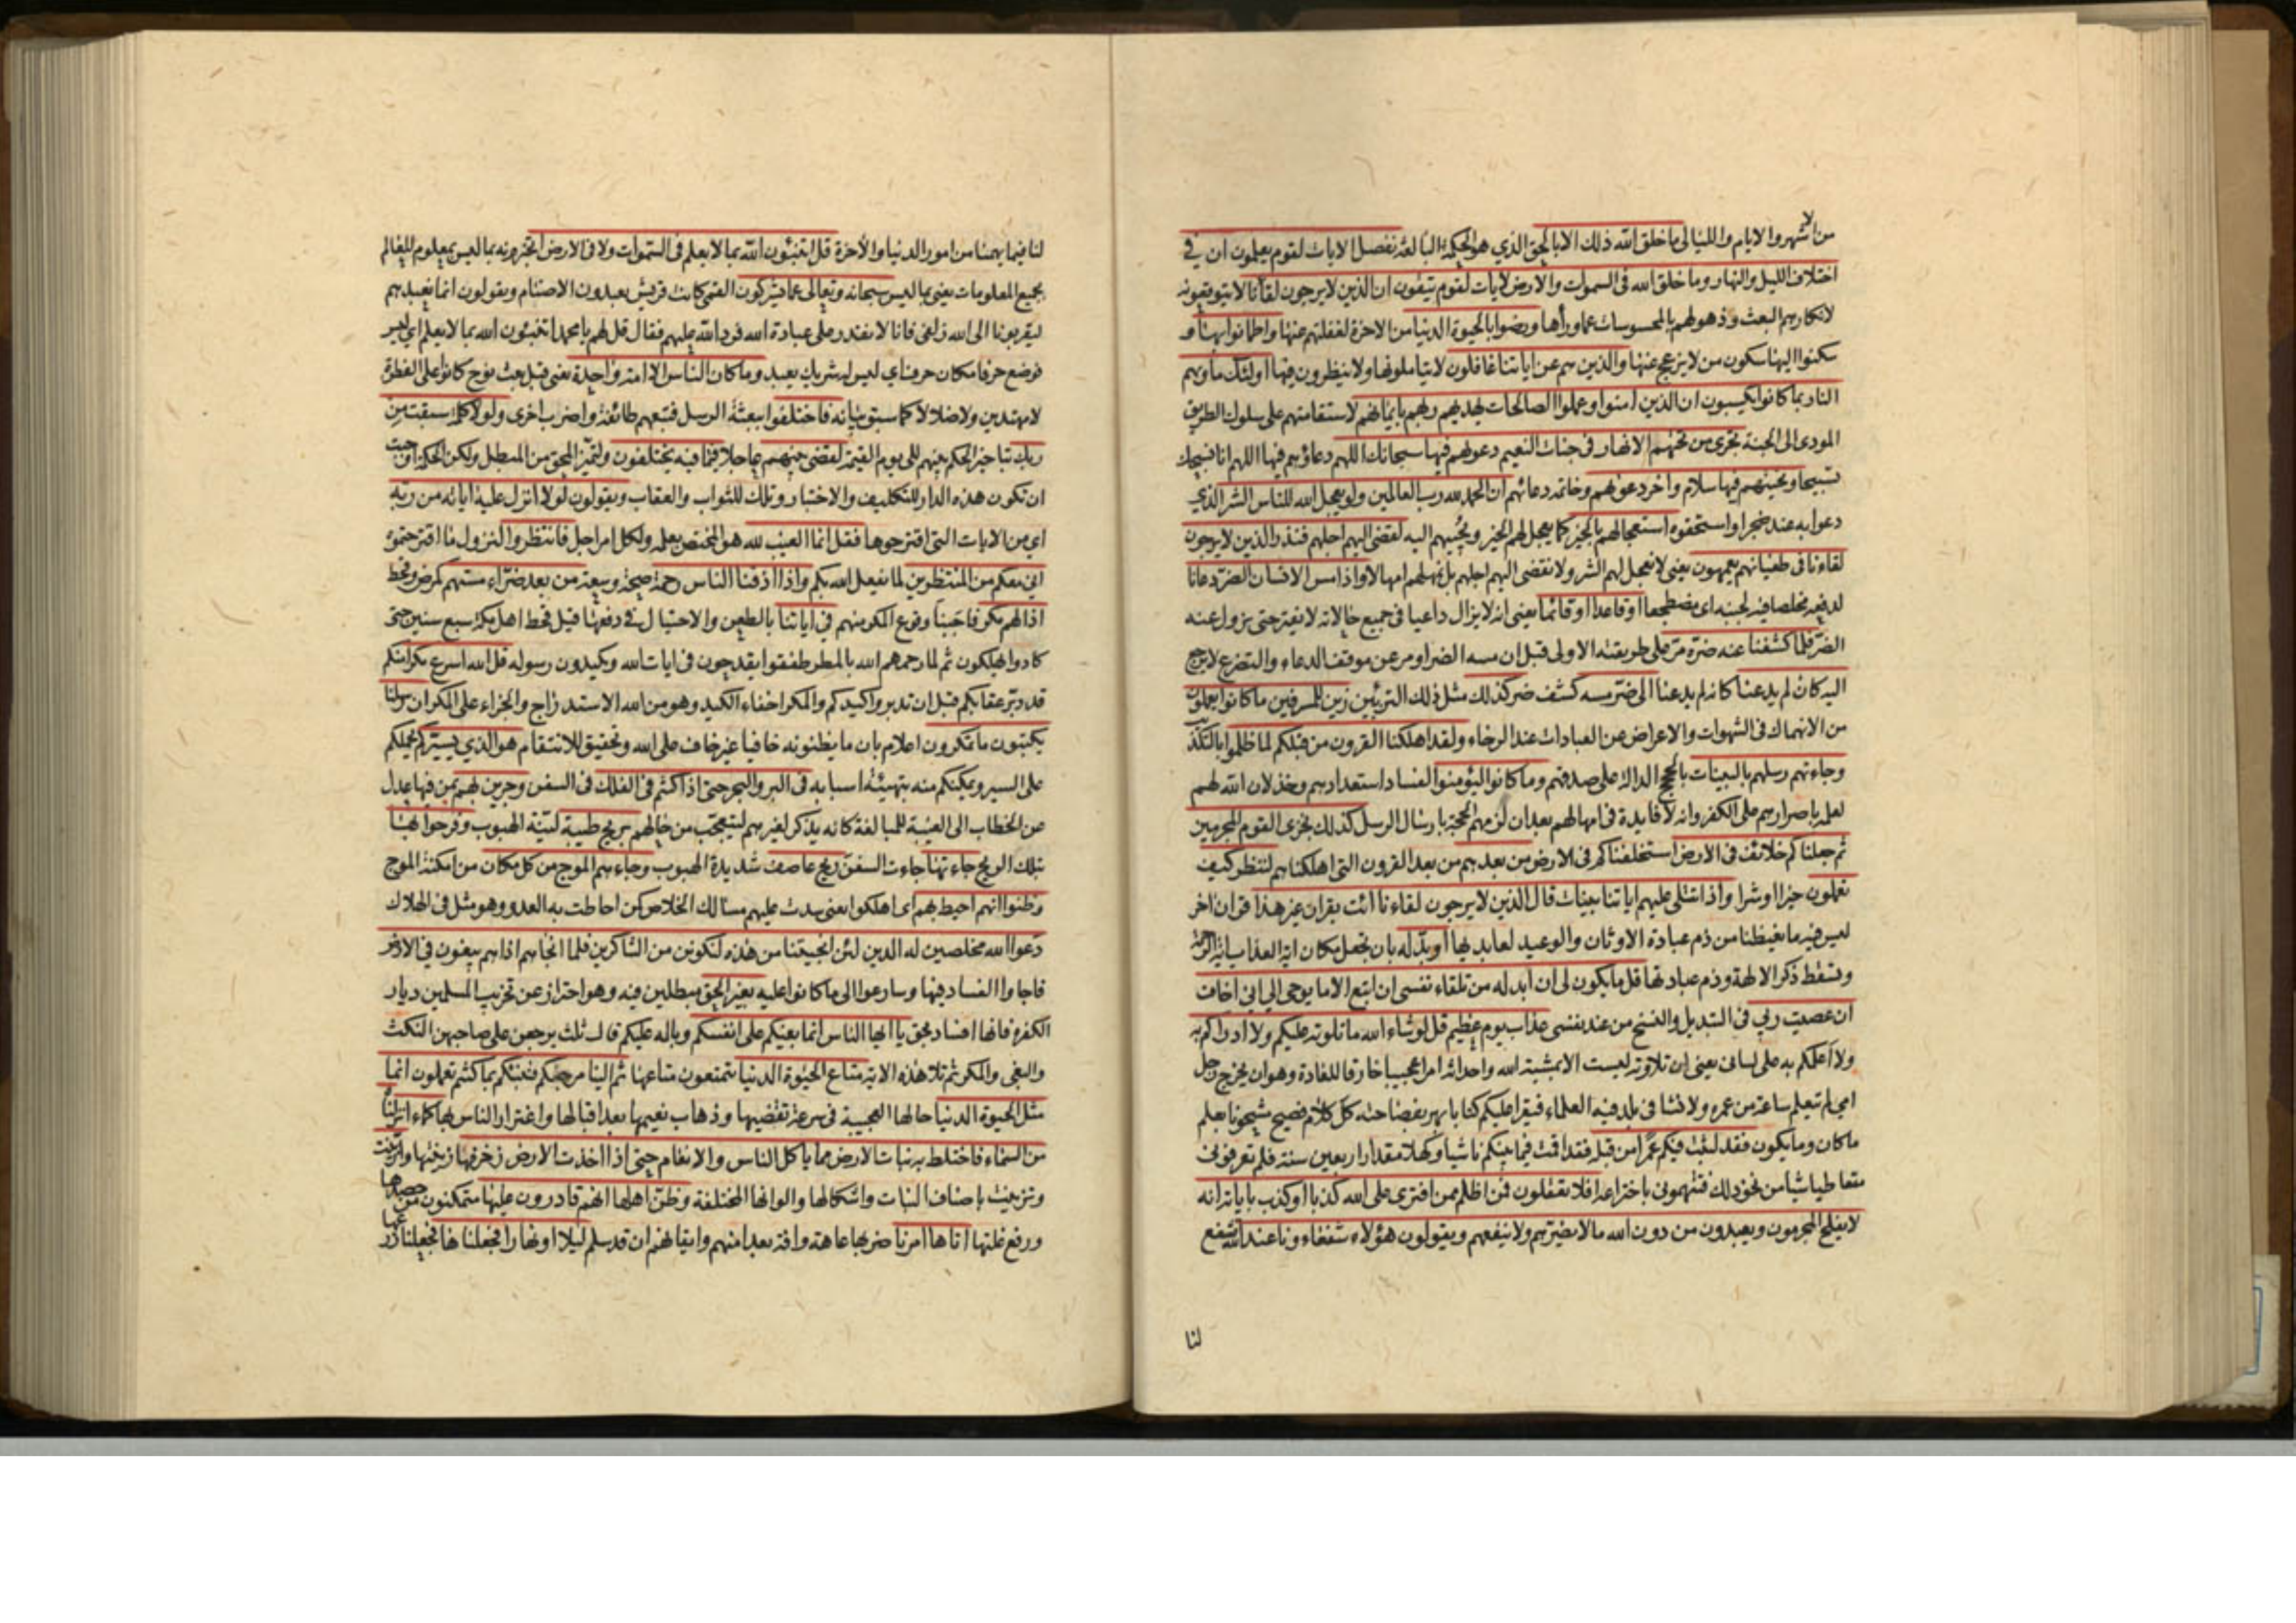 من الاشهر والايام والليالى ما خلق الله ذلك الا بالحق الذي هو الحكمة البالغة نفصل الايات لقوم يعلمون ان في
اختلاف الليل والنهار وما خلق الله فى السموات والارض لايات لقوم يتقون ان الذين لا يرجون لقاءنا لا يتوقعونه
لانكارهم البعث وذهولهم بالمحسوسات عما وراها ورضوا بالحيوة الدنيا من الاخرة لغفلتهم عنها واطمانوا بها و
سكنوا اليها سكون من لا يزعج عنها والذين هم عن اياتنا غافلون لا يتاملونها ولا ينظرون فيها اولئك ماويهم
النار بما كانوا يكسبون ان الذين امنوا وعملوا الصالحات يهديهم ربهم بايمانهم لاستقامتهم على سلوك الطريق
المودى الى الجنة تجرى من تحتهم الانهار فى جنات النعيم دعويهم فيها سبحانك اللهم دعاؤهم فيها اللهم انا نسبحك
تسبيحا وتحيتهم فيها سلام واخر دعويهم وخاتمة دعائهم ان الحمد لله رب العالمين ولو يعجل الله للناس الشر الذي
دعوا به عند ضجر او استحقوه استعجالهم بالخير كما يعجل لهم الخير ويجيبهم اليه لقضى اليهم اجلهم فنذر الذين لا يرجون
لقاءنا فى طغيانهم يعمهون يعنى لا نعجل لهم الشر ولا نقضى اليهم اجلهم بل نمهلهم امهالا واذا مس الانسان الضر دعانا
لدفعه مخلصا فيه لجنبه اى مضطجعا او قاعدا او قائما يعنى انه لا يزال داعيا فى جميع حالاته لا يفتر حتى يزول عنه
الضر فلما كشفنا عنه ضره مر على طريقته الاولى قبل ان مسه الضر او مر عن موقف الدعاء والتضرع لا يرجع
اليه كان لم يدعنا كانه لم يدعنا الى ضر مسه كشف ضر كذلك مثل ذلك التزيين زين للمسرفين ما كانوا يعملون
من الانهماك فى الشهوات والاعراض عن العبادات عند الرخاء ولقد اهلكنا القرون من قبلكم لما ظلموا بالتكذيب
وجاءتهم رسلهم بالبينات بالحجج الدالة على صدقهم وما كانوا ليؤمنوا لفساد استعدادهم وخذلان الله لهم
لعلمه باصرارهم على الكفر وانه لا فايدة فى امهالهم بعد ان لزمهم الحجة بارسال الرسل كذلك نجزى القوم المجرمين
ثم جعلناكم خلائف فى الارض استخلفناكم فى الارض من بعدهم من بعد القرون التى اهلكناهم لننظر كيف
تعملون خيرا او شرا واذا تتلى عليهم اياتنا بينات قال الذين لا يرجون لقاءنا ائت بقران غير هذا قران اخر
ليس فيه ما يغيظنا من ذم عبادة الاوثان والوعيد لعابديها او بدله بان تجعل مكان اية العذاب اية الرحمة
وتسقط ذكر الالهة وذم عبادتها قل ما يكون لى ان ابدله من تلقاء نفسى ان اتبع الا ما يوحى الي اني اخاف
ان عصيت ربي فى التبديل والنسخ من عند نفسى عذاب يوم عظيم قل لو شاء الله ما تلوته عليكم ولا ادراكم به
ولا اعلمكم به على لسانى يعنى ان تلاوته ليست الا بمشيته الله واحداثه امرا عجيبا خارقا للعادة وهو ان يخرج رجل
امي لم يتعلم ساعة من عمره ولا نشا فى بلد فيه العلماء فيقرا عليكم كتابا بهر بفصاحته كل كلام فصيح مشحونا بعلم
ما كان وما يكون فقد لبثت فيكم عمرا من قبله فقد اقمت فيما بينكم ناشيا وكهلا مقدار اربعين سنة فلم تعرفونى
متعاطيا شيا من نحو ذلك فتتهمونى باختراعه افلا تعقلون فمن اظلم ممن افترى على الله كذبا او كذب باياته انه
لا يفلح المجرمون ويعبدون من دون الله ما لا يضرهم ولا ينفعهم ويقولون هؤلاء شفعاءونا عند الله تشفع
لنا
لنا فيما يهمنا من امور الدنيا والاخرة قل اتنبئون الله بما لا يعلم فى السموات ولا فى الارض اتخبرونه بما ليس بمعلوم للعالم
بجميع المعلومات يعنى بما ليس سبحانه وتعالى عما يشركون القمى كانت قريش يعبدون الاصنام ويقولون انما نعبدهم
ليقربونا الى الله زلفى فانا لا نقدر على عبادة الله فرد الله عليهم فقال قل لهم يا محمد اتنبئون الله بما لا يعلم اي ليس
فوضع حرفا مكان حرف اي ليس له شريك يعبد وما كان الناس الا امة واحدة يعنى قبل بعث نوح كانوا على الفطرة
لا مهتدين ولا ضلالا كما سبق بيانه فاختلفوا ببعثة الرسل فتبعهم طائفة واضرب اخرى ولولا كلمة سبقت من
ربك بتاخير الحكم بينهم الى يوم القيمة لقضى بينهم عاجلا فيما فيه يختلفون ولتميز المحق من المبطل ولكن الحكمة اوجبت
ان تكون هذه الدار للتكليف والاختبار وتلك للثواب والعقاب ويقولون لولا انزل عليه اياته من ربه
اي من الايات التى اقترحوها فقل انما الغيب لله هو المختص بعلمه ولكل امر اجل فانتظروا النزول ما اقترحتموه
اني معكم من المنتظرين لما يفعل الله بكم واذا اذقنا الناس رحمة صحة وسعة من بعد ضراء مستهم كمرض وقحط
اذا لهم مكر فاجبنا وقوع المكر منهم في اياتنا بالطعن والاحتيال في دفعها قيل قحط اهل مكة سبع سنين حتى
كادوا يهلكون ثم لما رحمهم الله بالمطر طفقوا يقدحون فى ايات الله ويكيدون رسوله قل الله اسرع مكرا منكم
قد دبر عقابكم قبل ان تدبروا كيدكم والمكر اخفاء الكيد وهو من الله الاستدراج والجزاء على المكر ان رسلنا
يكتبون ما تمكرون اعلام بان ما يظنونه خافيا غير خاف على الله وتحقيق للانتقام هو الذي يسيركم يحملكم
على السير ويمكنكم منه بتهيئة اسبابه فى البر والبحر حتى اذا كنتم فى الفلك فى السفن وجرين بهم بمن فيها عدل
عن الخطاب الى الغيبة للمبالغة كانه يذكر لغيرهم ليتعجب من حالهم بريح طيبة لينة الهبوب وفرحوا بها
بتلك الريح جاءتها جاءت السفن ريح عاصف شديدة الهبوب وجاءهم الموج من كل مكان من امكنة الموج
وظنوا انهم احيط بهم اى اهلكوا يعنى سدت عليهم مسالك الخلاص كمن احاطت به العدو وهو مثل فى الهلاك
دعوا الله مخلصين له الدين لئن انجيتنا من هذه لنكونن من الشاكرين فلما انجاهم اذا هم يبغون في الارض
فاجاوا الفساد فيها وسارعوا الى ما كانوا عليه بغير الحق مبطلين فيه وهو احتراز عن تخريب المسلمين ديار
الكفرة فانها افساد بحق يا ايها الناس انما بغيكم على انفسكم وباله عليكم قال ثلث يرجعن على صاحبهن النكث
والبغى والمكر ثم تلا هذه الاية متاع الحيوة الدنيا تتمتعون متاعها ثم الينا مرجعكم فننبئكم بما كنتم تعملون انما
مثل الحيوة الدنيا حالها العجيبة فى سرعة تقضيها وذهاب نعيمها بعد اقبالها واغترار الناس بها كماء انزلناه
من السماء فاختلط به نبات الارض مما ياكل الناس والانعام حتى اذا اخذت الارض زخرفها زينتها وازينت
وتزينت باصناف النبات واشكالها والوانها المختلفة وظن اهلها انهم قادرون عليها متمكنون من حصدها
ورفع غلتها اتاها امرنا ضربها عاهة وافة بعد امنهم وايقانهم ان قد سلم ليلا او نهارا فجعلناها فجعلنا زرعها